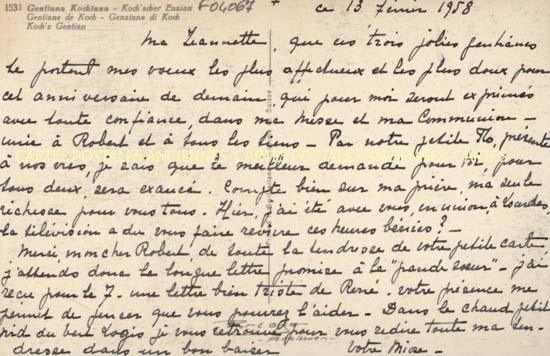 1531 Gentiana Kochiana - Koch'scher Enzian
Gentiane de Koch - Genziana di Koch
Koch's Gentian
F04067
ce 13 Février 1958
Ma Jeannette, que ces trois jolies gentianes
te portent mes voeux les plus affectueux et les plus doux pour
cet anniversaire de demain, qui pour moi seront exprimés
avec toute confiance, dans ma Messe et ma Communion -
unie à Robert et à tous les tiens - Par notre petite Th, présente
à nos vies, je sais que le meilleur demandé pour toi, pour
tous deux, sera exaucé. Compte bien sur ma prière, ma seule
richesse pour vous tous. Hier, j'ai été avec vous, en union, à Lourdes
la télévision a du vous faire revivre ces heures bénies ? -
Merci, mon cher Robert, de toute la tendresse de votre petite carte,
j'attends donc la longue lettre promise à la "grande soeur" - j'ai
reçu pour le 7 - une lettre bien triste de René. Votre présence me
permet de penser que vous pourrez l'aider - Dans le chaud petit
nid du vert Logis, je vous retrouve pour vous redire toute ma ten-
dresse dans un bon baiser
Votre